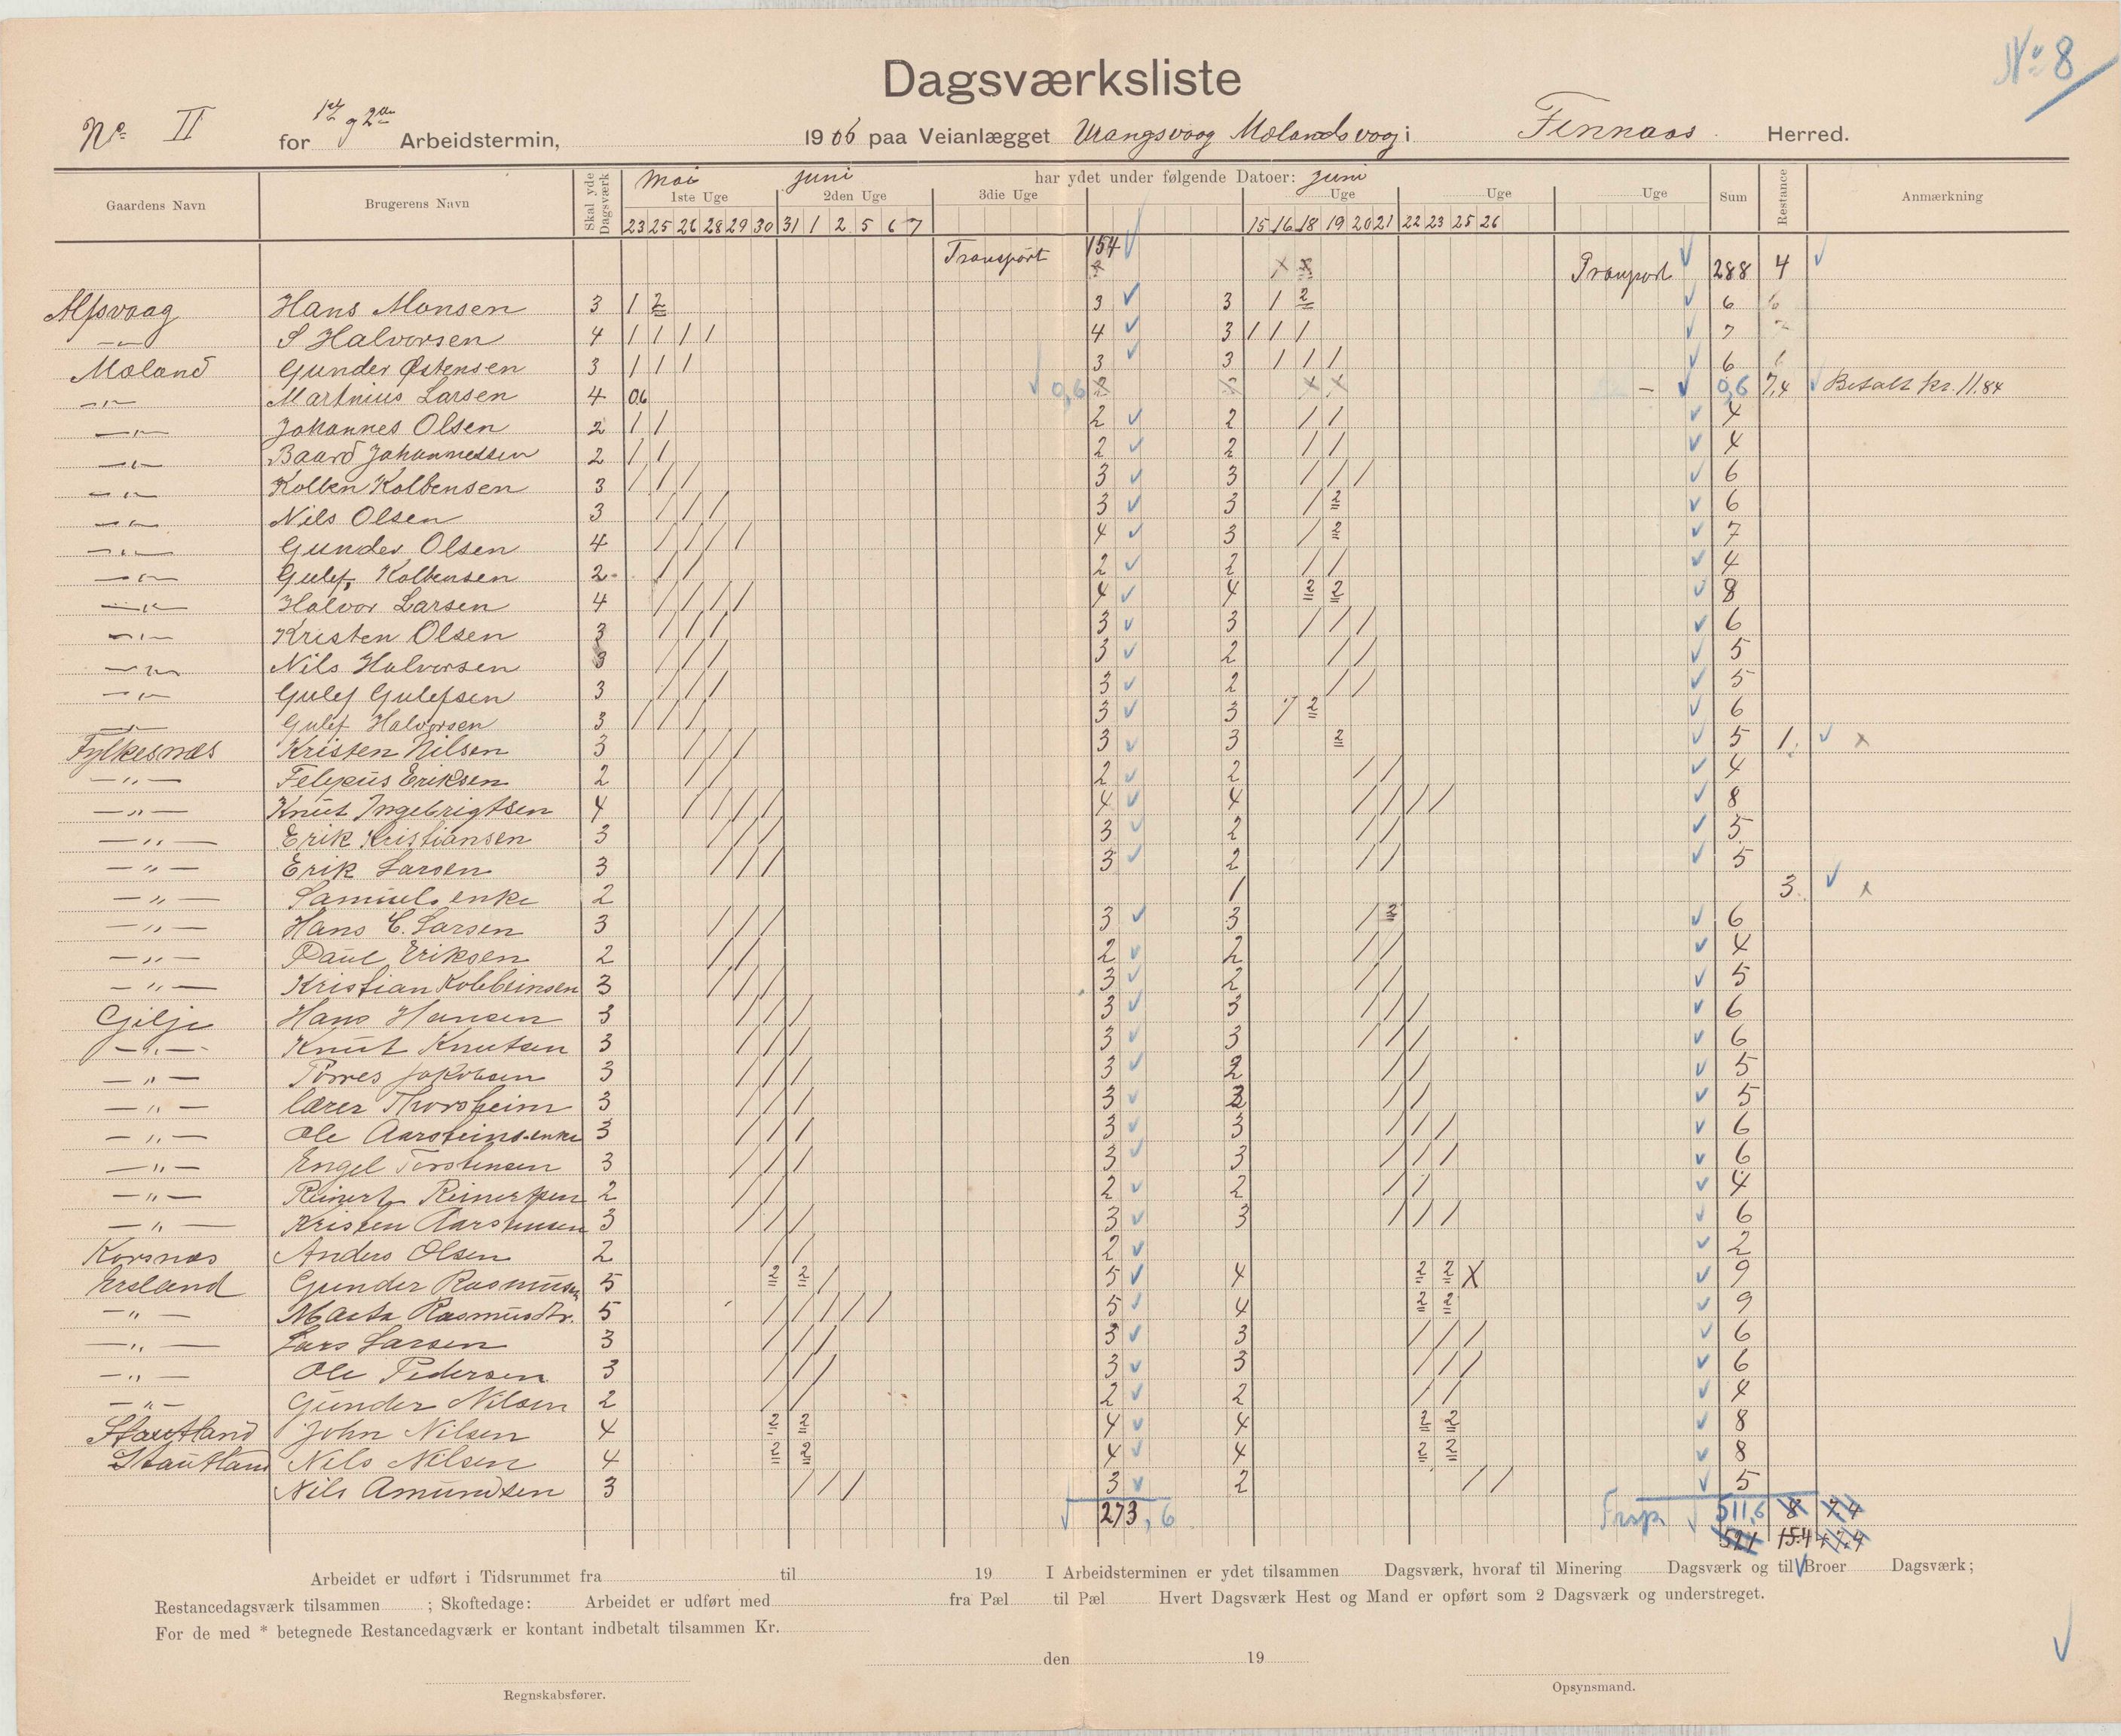 Nº 8
Dagsværksliste
No II for 1ste og 2den Arbeidstermin, 1906 paa Veianlægget Urangsvaag Mølandsvaag i Finnaas Herred.
Gaardens Navn Brugerens Navn Skal yde Dagsværk har ydet under følgende Datoer: Sum Restance Anmærkning
Mai Juni Juni
1ste Uge 2den Uge 3die Uge Uge Uge Uge
23 25 26 28 29 30 31 1 2 5 6 7 15 16 18 19 20 21 22 23 25 26
Transport 154 ✓ Transport ✓ 288 4 ✓
x x x
Alfsvaag Hans Monsen 3 1 2 3 ✓ 3 1 2 ✓ 6
-"- S Halvorsen 4 1 1 1 1 4 ✓ 3 1 1 1 ✓ 7
Møland Gunder Østensen 3 1 1 1 3 ✓ 3 1 1 1 ✓ 6
-"- Martnius Larsen 4 0.6 ✓ 0,6 x x - ✓ 0,6 7,4 ✓ Betalt kr. 11.84
-"- Johannes Olsen 2 / / 2 ✓ 2 / / ✓ 4
-"- Baard Johannessen 2 / / 2 ✓ 2 / / ✓ 4
-"- Kolben Kolbensen 3 / / / 3 ✓ 3 / / / ✓ 6
-"- Nils Olsen 3 / / / 3 ✓ 3 / 2 ✓ 6
-"- Gunder Olsen 4 / / / / 4 ✓ 3 / 2 ✓ 7
-"- Gulef Kolbensen 2 / / 2 ✓ 2 / / ✓ 4
-"- Halvor Larsen 4 / / / / 4 ✓ 4 2 2 ✓ 8
-"- Kristen Olsen 3 / / / 3 ✓ 3 / / / ✓ 6
-"- Nils Halvorsen 3 / / / 3 ✓ 2 / / ✓ 5
-"- Gulef Gulefsen 3 / / / 3 ✓ 2 / / ✓ 5
-"- Gulef Halvorsen 3 / / / 3 ✓ 3 / 2 ✓ 6
Fylkesnæs Kristen Nilsen 3 / / / 3 ✓ 3 2 ✓ 5 1. ✓ x
-"- Felepus Eriksen 2 / / 2 ✓ 2 / / ✓ 4
-"- Knut Ingebrigtsen 4 / / / / 4 ✓ 4 / / / / ✓ 8
-"- Erik Kristiansen 3 / / / 3 ✓ 2 / / ✓ 5
-"- Erik Larsen 3 / / / 3 ✓ 2 / / ✓ 5
-"- Samuels enke 2 1 3. ✓ x
-"- Hans E. Larsen 3 / / / 3 ✓ 3 / 2 ✓ 6
-"- Paul Eriksen 2 / / 2 ✓ 2 / / ✓ 4
-"- Kristian Kolbeinsen 3 / / / 3 ✓ 2 / / ✓ 5
Gilje Hans Hansen 3 / / / 3 ✓ 3 / / / ✓ 6
-"- Knut Knutsen 3 / / / 3 ✓ 3 / / / ✓ 6
-"- Torres Jakobsen 3 / / / 3 ✓ 2 / / ✓ 5
-"- lærer Thorsheim 3 / / / 3 ✓ 2 / / ✓ 5
-"- Ole Aarsteins enke 3 / / / 3 ✓ 3 / / / ✓ 6
-"- Engel Torstensen 3 / / / 3 ✓ 3 / / / ✓ 6
-"- Reinert Reinertsen 2 / / 2 ✓ 2 / / ✓ 4
-"- Kristen Aarstensen 3 / / / 3 ✓ 3 / / / ✓ 6
Korsnæs Anders Olsen 2 / / 2 ✓ ✓ 2
Ersland Gunder Rasmusen 5 2 2 / 5 ✓ 4 2 2 X ✓ 9
-"- Marta Rasmusdtr. 5 / / / / / 5 ✓ 4 2 2 ✓ 9
-"- Lars Larsen 3 / / / 3 ✓ 3 / / / ✓ 6
-"- Ole Pedersen 3 / / / 3 ✓ 3 / / / ✓ 6
-"- Gunder Nilsen 2 / / 2 ✓ 2 / / ✓ 4
Stautland John Nilsen 4 2 2 4 ✓ 4 2 2 ✓ 8
Stautland Nils Nilsen 4 2 2 4 ✓ 4 2 2 ✓ 8
Nils Amundsen 3 / / / 3 ✓ 2 / / ✓ 5
✓ 273,6 Trsp ✓ 511,6 8 7.4
521 15.4 + 7.4
Arbeidet er udført i Tidsrummet fra til 19 I Arbeidsterminen er ydet tilsammen Dagsværk, hvoraf til Minering Dagsværk og til Broer Dagsværk;
Restancedagsværk tilsammen ; Skoftedage: Arbeidet er udført med fra Pæl til Pæl Hvert Dagsværk Hest og Mand er opført som 2 Dagsværk og understreget.
For de med * betegnede Restancedagværk er kontant indbetalt tilsammen Kr.
den 19
Regnskabsfører. Opsynsmand.